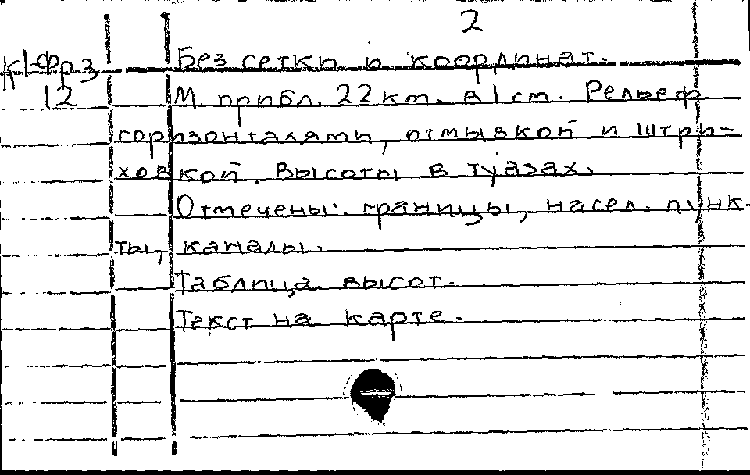 2
К 1-Фрз Без сетки и координат.
12 М. прибл. 22 км. в 1 см. Рельеф
горизонталями, отмывкой и штри-
ховкой. Высоты в туазах.
Отмечены: границы, насел. пунк-
ты, каналы.
Таблица высот.
Текст на карте.